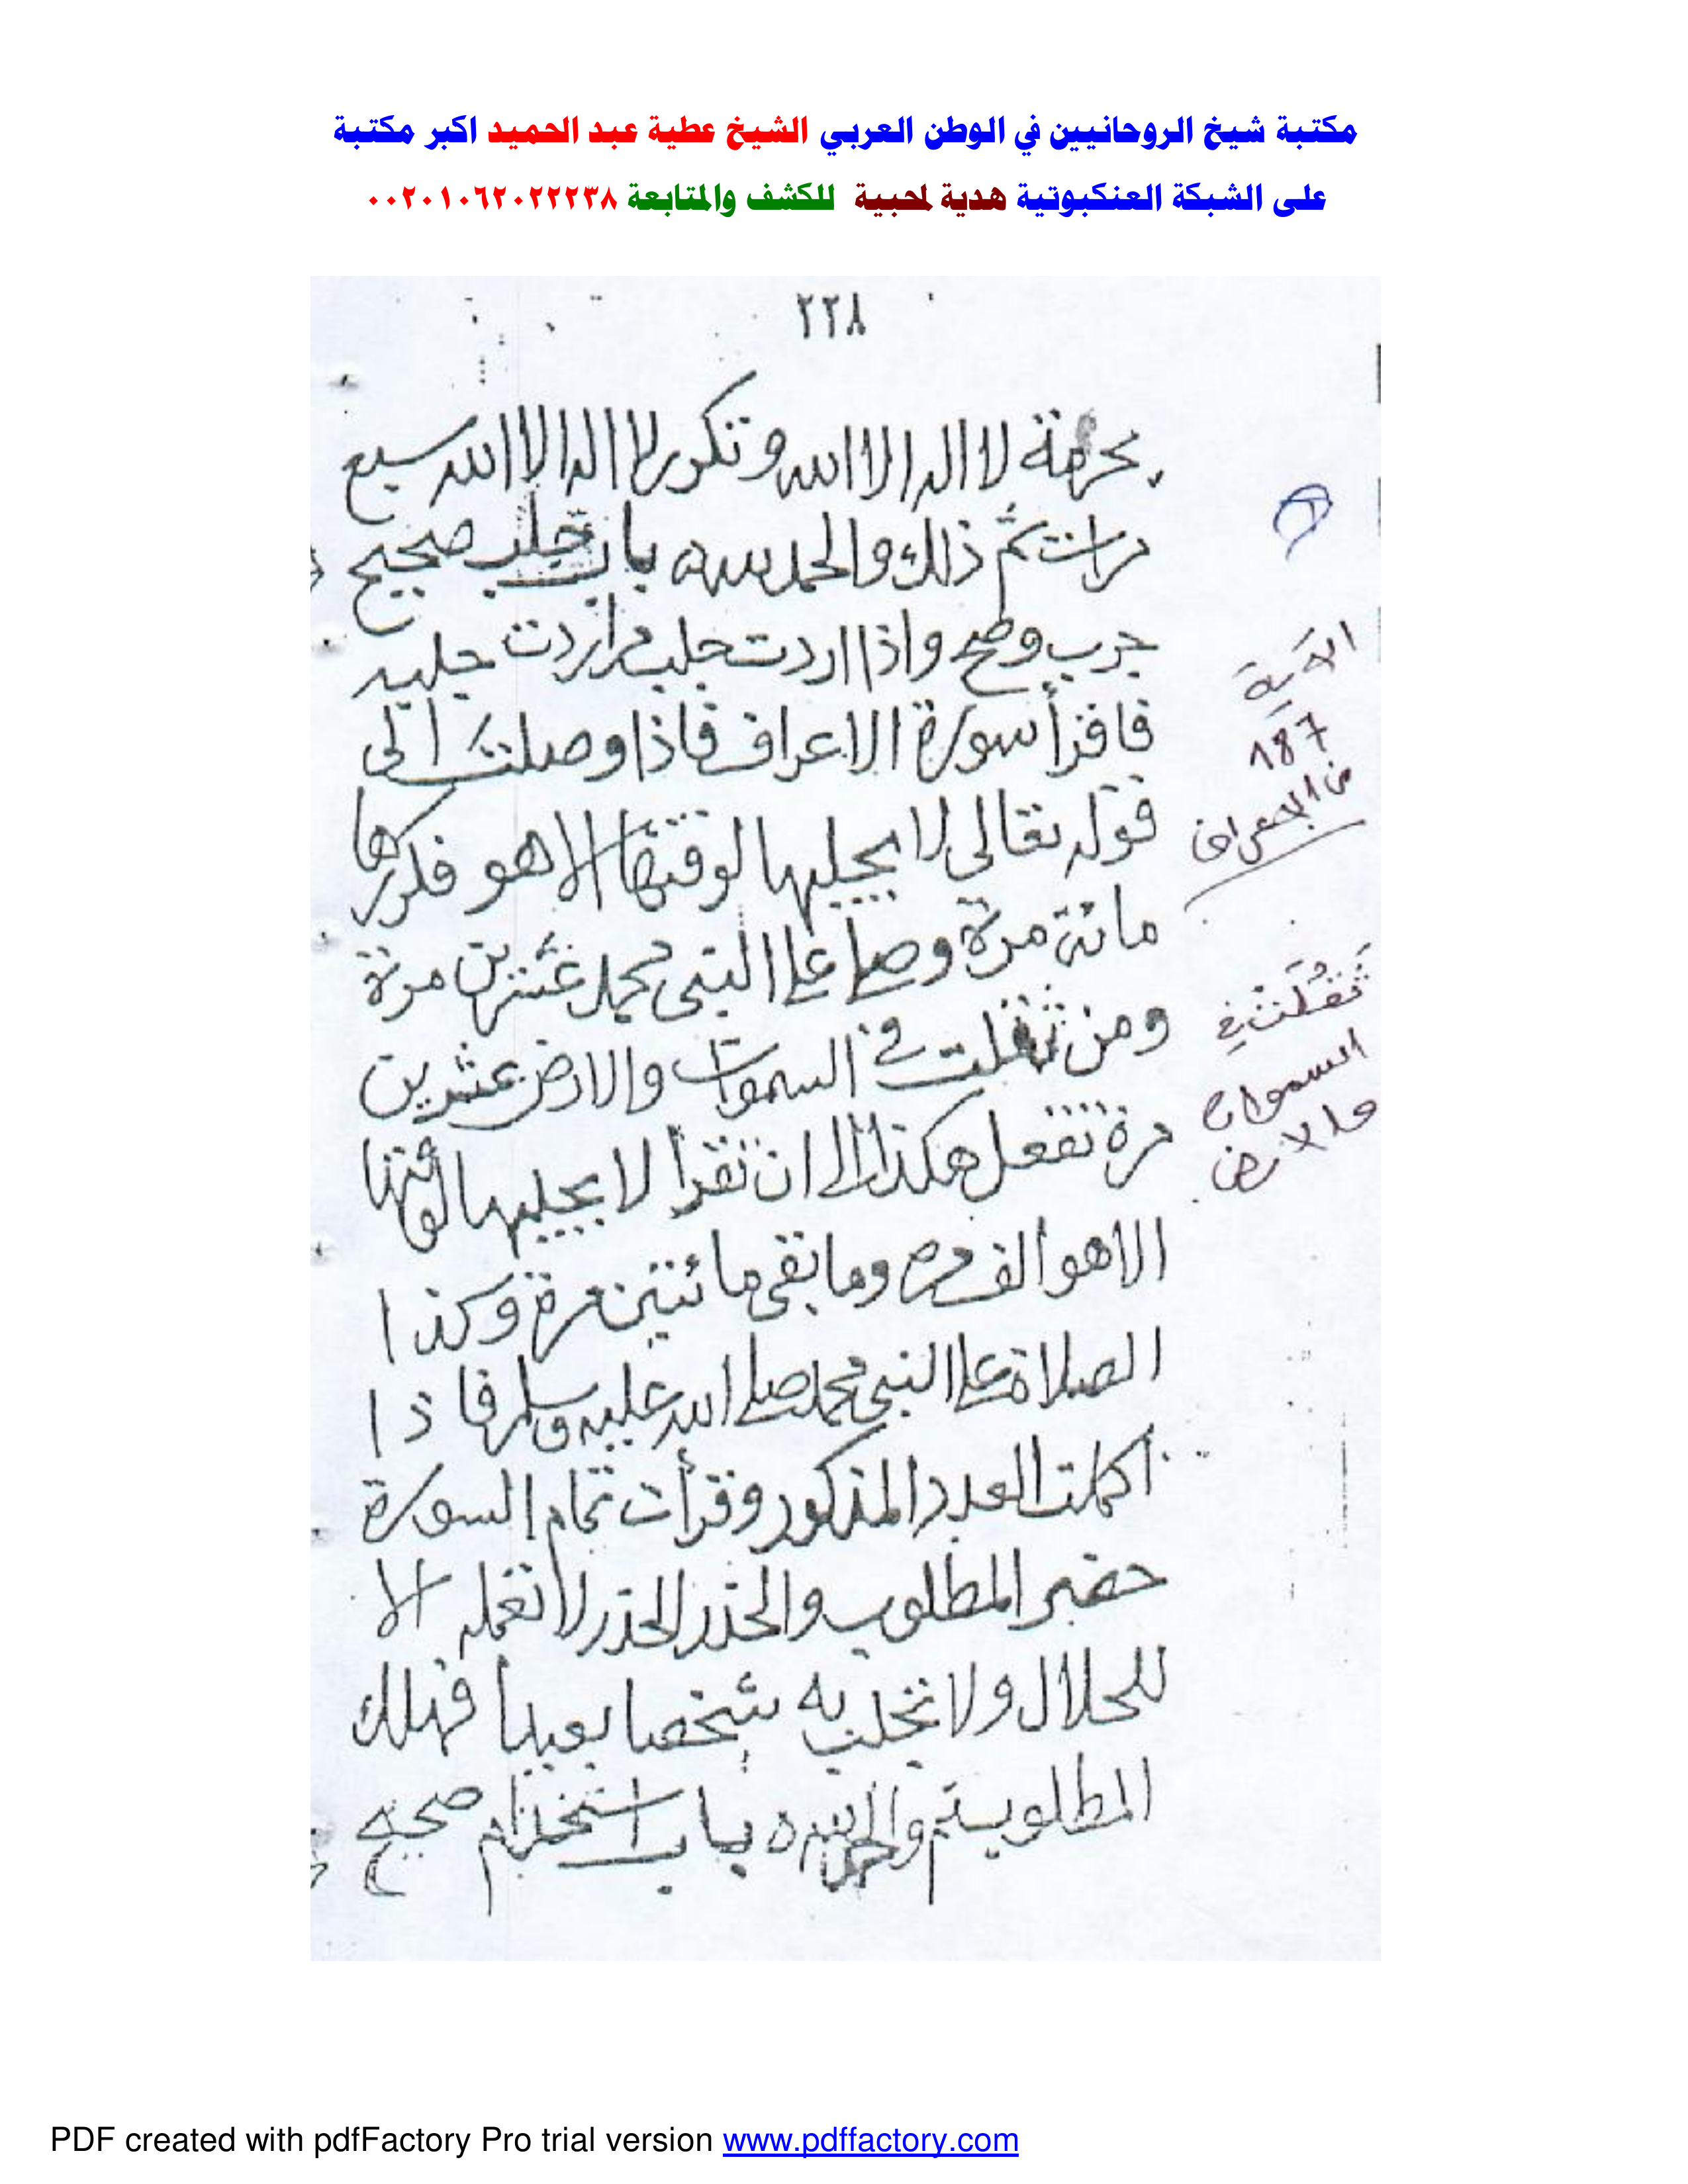 مكتبة شيخ الروحانيين في الوطن العربي الشيخ عطية عبد الحميد اكبر مكتبة
على الشبكة العنكبوتية هدية لمحبية للكشف والمتابعة ٠٠٢٠١٠٦٢٠٢٢٢٣٨
٢٢٨
بحرمة لا اله الا الله وتكرر لا اله الا الله سبع
مرات تم ذلك والحمد لله باب جلب صحيح
جرب وصح واذا اردت جلب من اردت جلبه
فاقرأ سورة الاعراف فاذا وصلت الى
قوله تعالى لا يجليها لوقتها الا هو فكررها
مائة مرة وصل على النبى محمد عشرين مرة
ومن ثقلت في السموات والارض عشرين
مرة تفعل هكذا الى ان تقرأ لا يجليها لوقتها
الا هو الف مره وما بقى مائتين مرة وكذا
الصلاة على النبى محمد صلى الله عليه وسلم فاذا
اكملت العدد المذكور وقرأت تمام السورة
حضر المطلوب والحذر الحذر لا تعمله الا
للحلال ولا تجلب به شخصا بعيدا فهلك
المطلوب تم والحمد لله باب استخدام صحيح
الآية
187
من الاعراف
ثَقُلَتْ في
السموات
والارض
PDF created with pdfFactory Pro trial version www.pdffactory.com